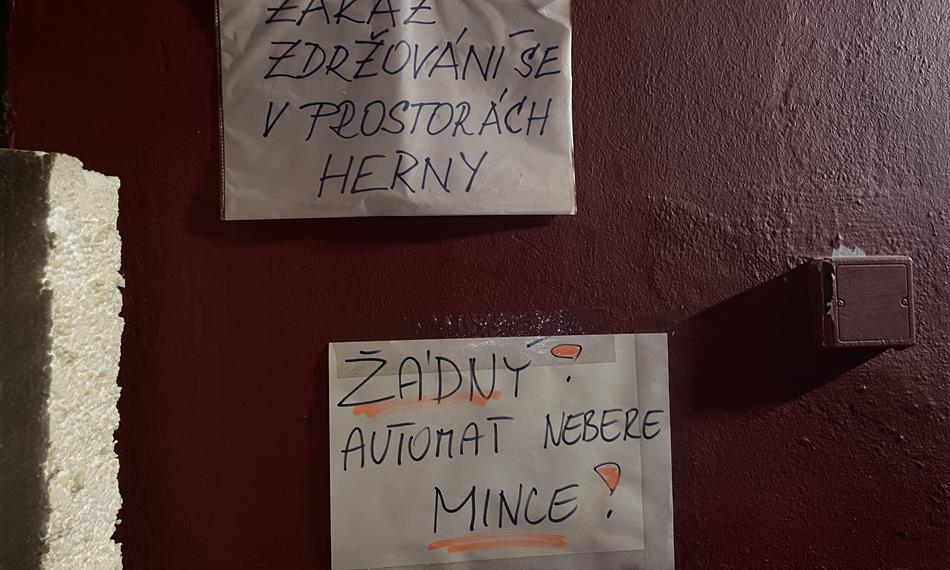 ZÁKAZ
ZDRŽOVÁNÍ SE
V PROSTORÁCH
HERNY
ŽÁDNÝ!
AUTOMAT NEBERE
MINCE!